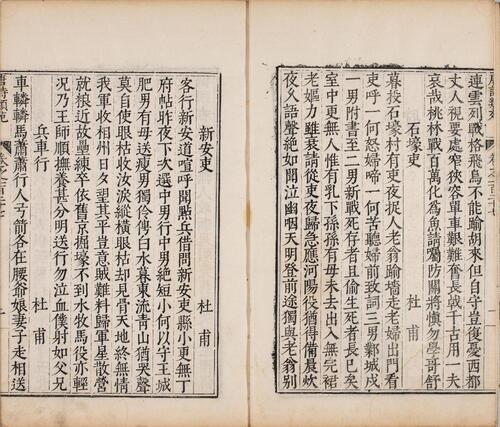 連雲列戰格飛鳥不能踰胡來但自守豈復憂西都
丈人視要處窄狹容單車艱難奮長戟千古用一夫
哀哉桃林戰百萬化為魚請囑防關將慎勿學哥舒
石壕吏 杜甫
暮投石壕村有吏夜捉人老翁踰墻走老婦出門看
吏呼一何怒婦啼一何苦聽婦前致詞三男鄴城戍
一男附書至二男新戰死存者且偷生死者長已矣
室中更無人惟有乳下孫孫有母未去出入無完裙
老嫗力雖衰請從吏夜歸急應河陽役猶得備晨炊
夜久語聲絕如聞泣幽咽天明登前途獨與老翁別
新安吏 杜甫
客行新安道喧呼聞點兵借問新安吏縣小更無丁
府帖昨夜下次選中男行中男絕短小何以守王城
肥男有母送瘦男獨伶俜白水暮東流青山猶哭聲
莫自使眼枯收汝淚縱橫眼枯却見骨天地終無情
我軍收相州日夕望其平豈意賊難料歸軍星散營
就粮近故壘練卒依舊京掘壕不到水牧馬役亦輕
況乃王師順撫養甚分明送行勿泣血僕射如父兄
兵車行 杜甫
車轔轔馬蕭蕭行人弓箭各在腰爺娘妻子走相送
唐詩類苑